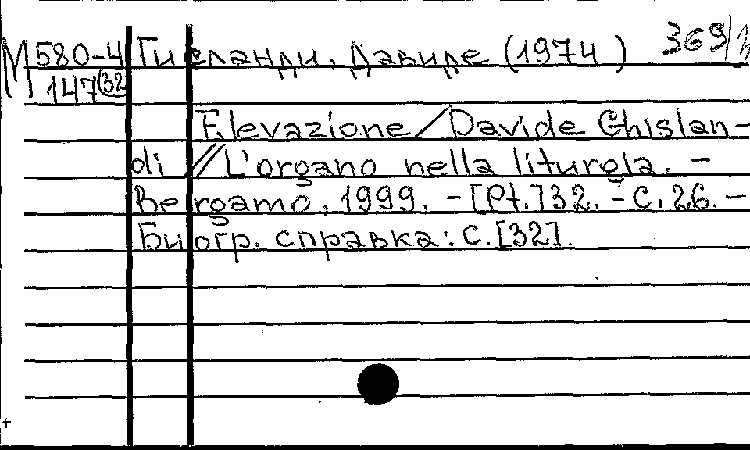 М 580-4 Гисланди, Давиде (1974 ) 369/
147(32
Elevazione / Davide Ghislan-
di // L'organo nella liturgia. -
Bergamo, 1999. - [Pt.]32. - С. 26. -
Биогр. справка: с. [32].